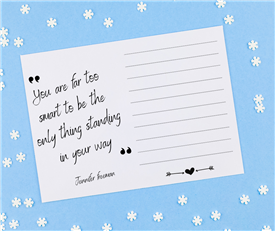 "
You are far too
smart to be the
only thing standing
in your way
"
Jennifer Freeman